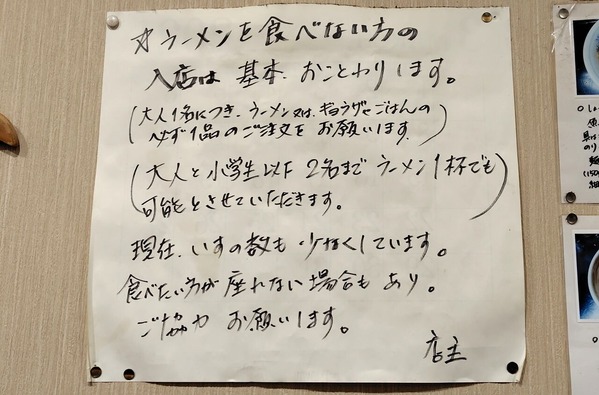 ☆ラーメンを食べない方の
入店は基本、おことわりします。
(大人1名につき、ラーメン又は、ギョウザとごはんの
必ず1品のご注文をお願います。)
(大人と小学生以下2名までラーメン1杯でも
可能とさせていただきます。)
現在、いすの数も少なくしています。
食べたい方が座れない場合もあり。
ご協力お願いします。
店主